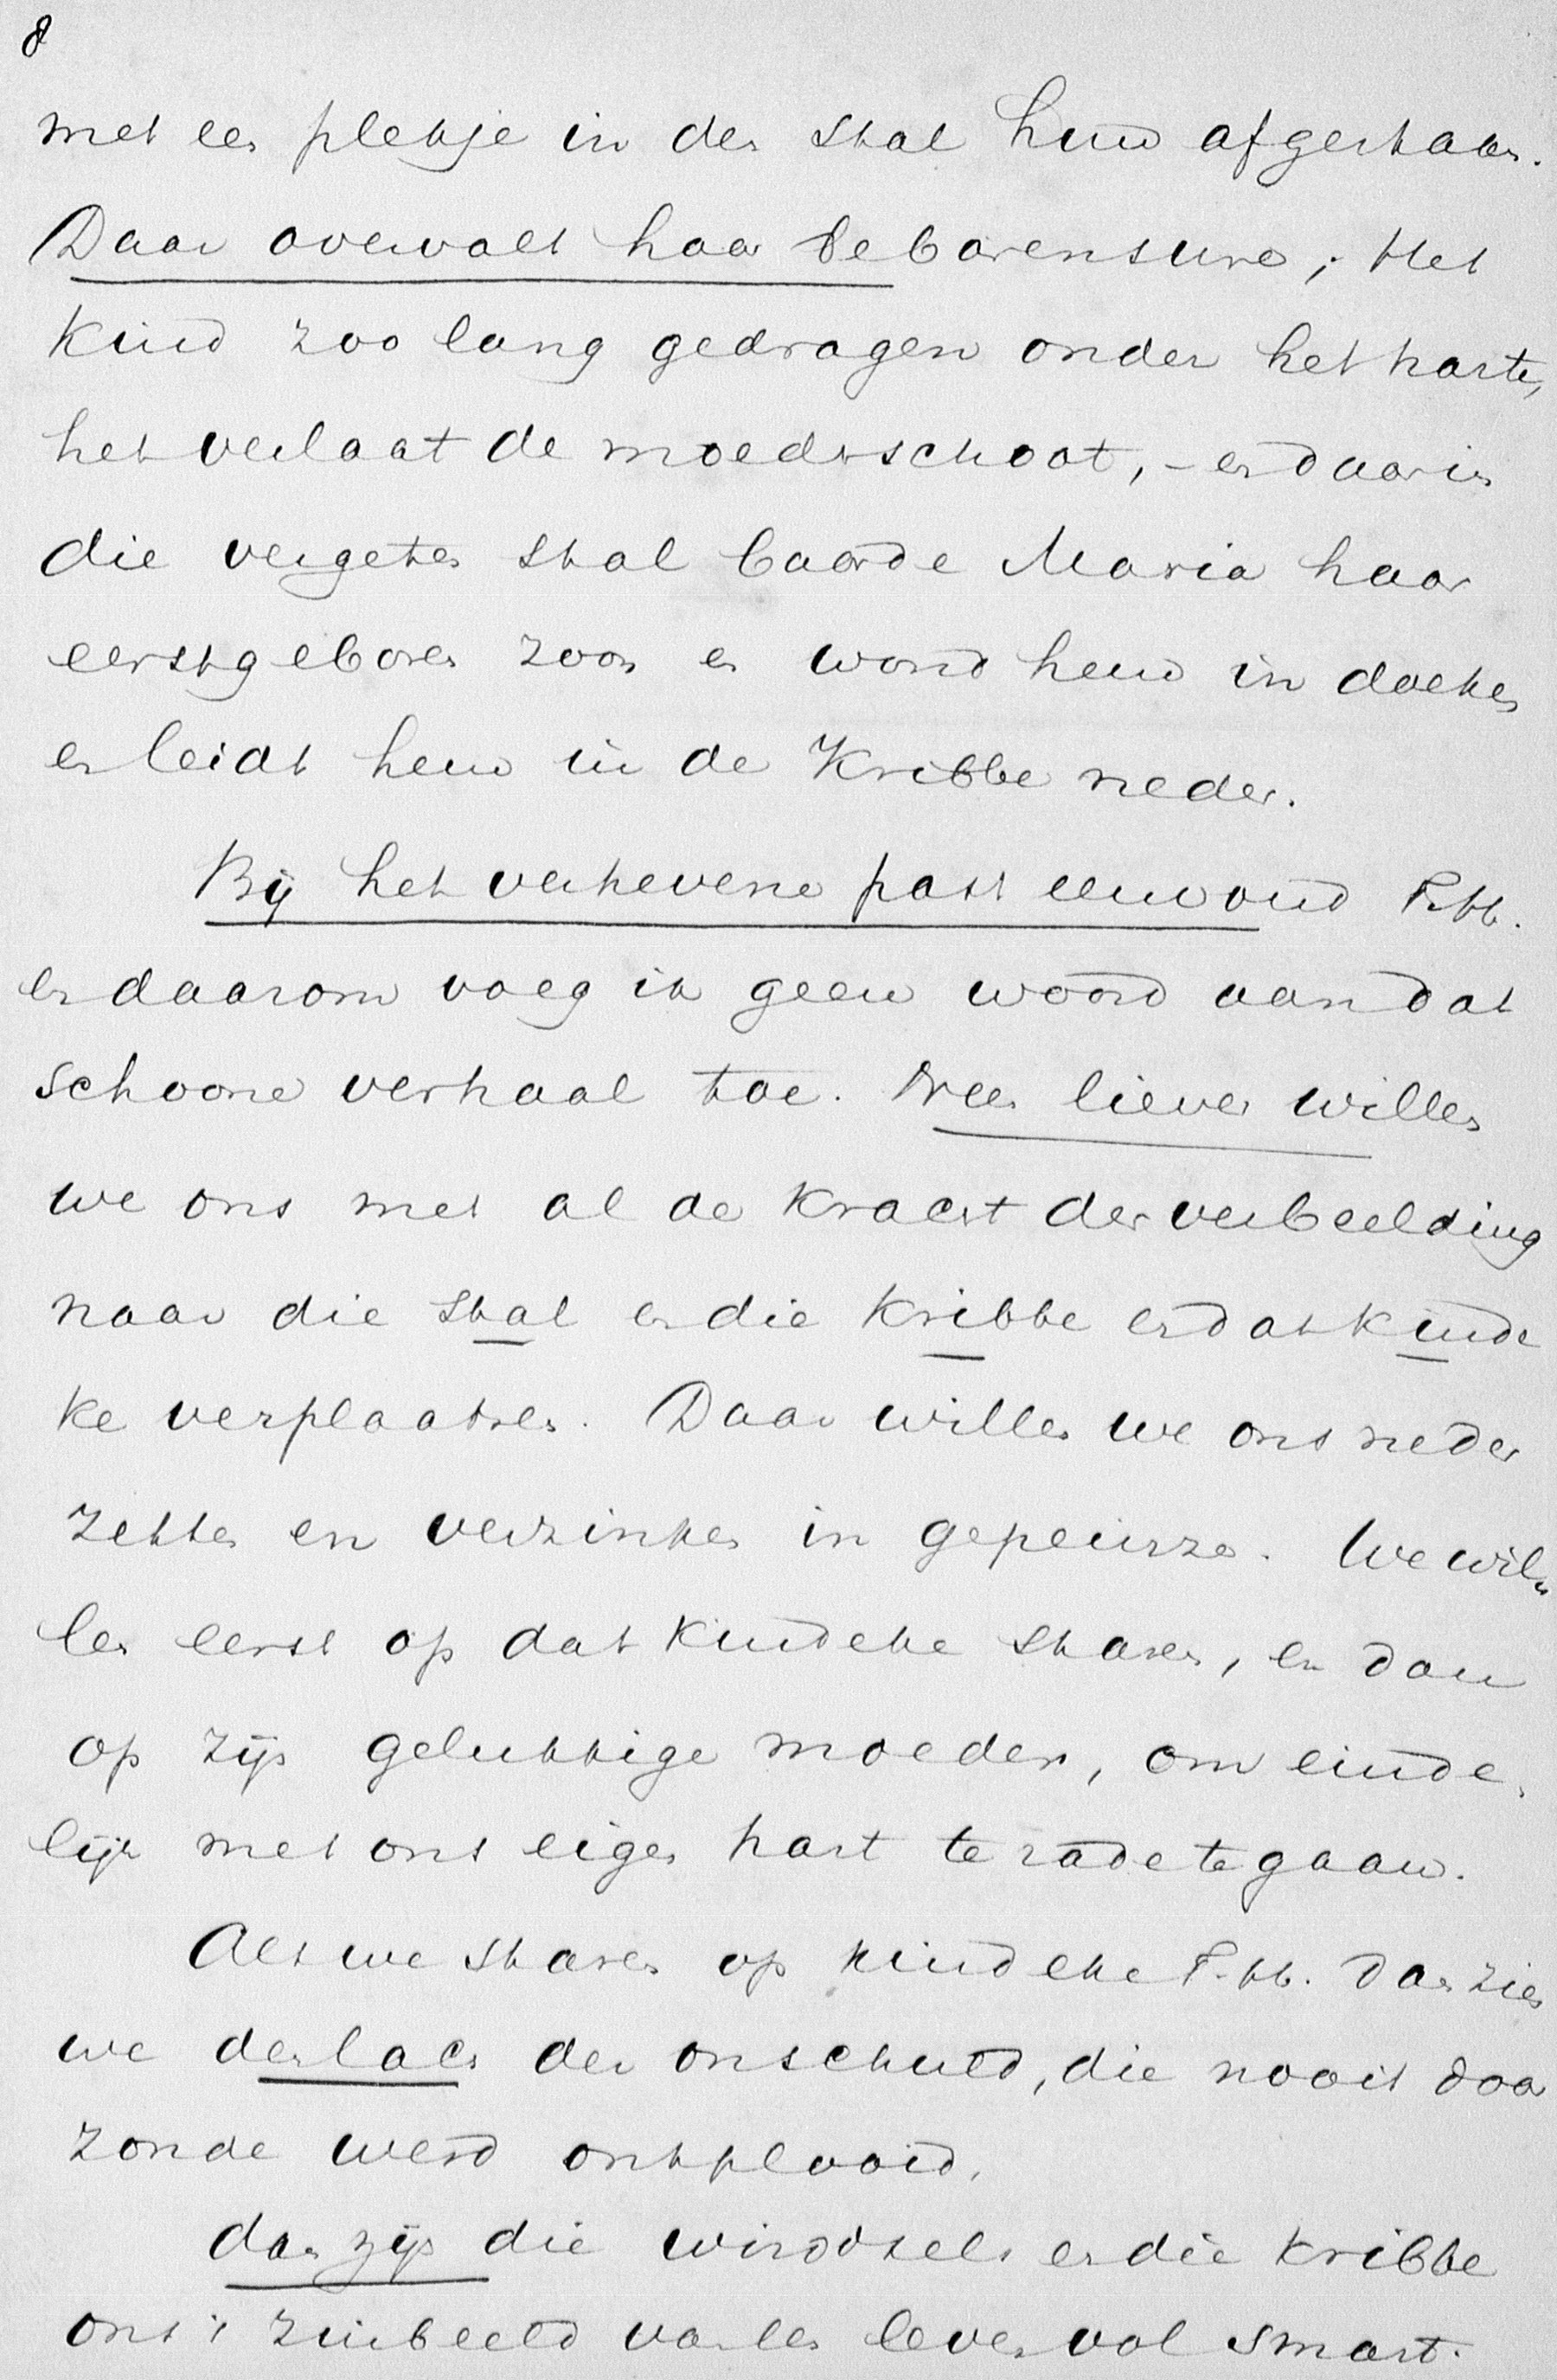 8
met een plekje in den stal hun afgestaan.
Daar overvalt haar de barensure; Het
kind zoo lang gedragen onder het harte,
het verlaat de moederschoot, - en daar in
die vergeten stal baarde Maria haar
eerstgeboren zoon en wond hem in doeken
en leidt hem in de Kribbe neder.
Bij het verhevene past eenvoud F. hh.
en daarom voeg ik geen woord aan dat
schoone verhaal toe. Neen liever willen
we ons met al de kracht der verbeelding
naar die stal en die kribbe en dat kinde
ke verplaatsen. Daar willen we ons neder
zetten en verzinken in gepeinzen. We wil„
len eerst op dat kindeke staren, en dan
op zijn gelukkige moeder, om einde„
lijk met ons eigen hart te rade te gaan.
Als we staren op kindeke F. hh. dan zien
we den lach der onschuld, die nooit door
zonde werd ontplooid.
dan zijn die windsels en die kribbe
ons 't zinbeeld van een leven vol smart.